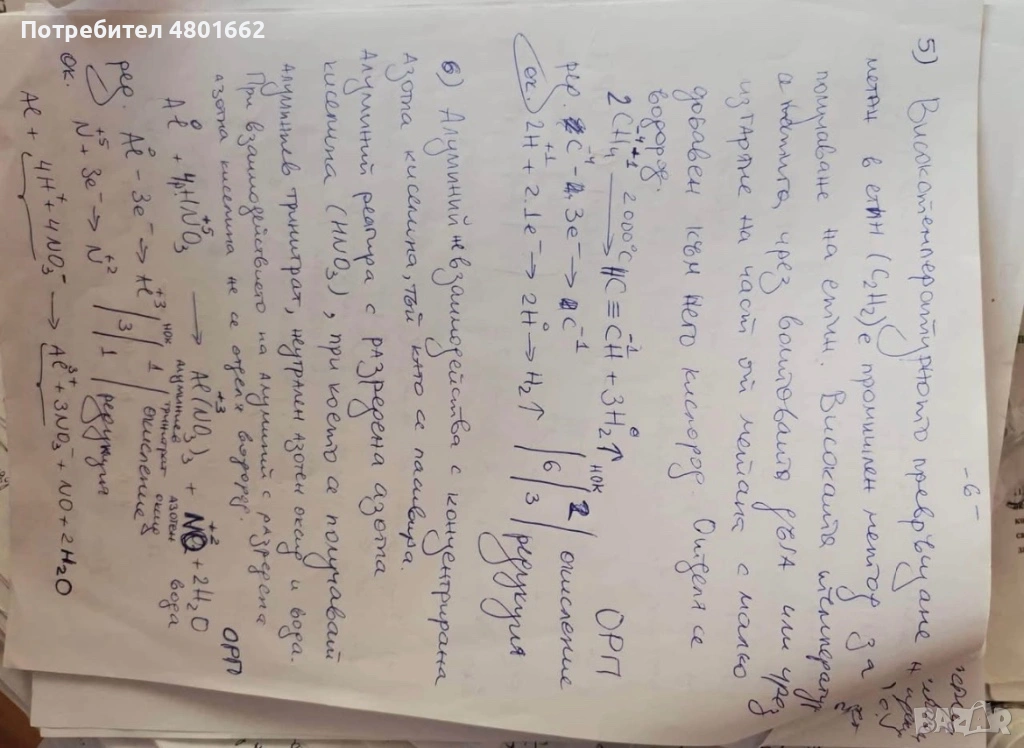 Потребител 4801662
- 6 -
5) Високотемпературното превръщане н
метан в етин (C₂H₂) е промишлен метод за
получаване на етин. Високата температура
се постига чрез волтовата дъга или чрез
изгаряне на част от метана с малко
добавен към него кислород. Отделя се
водород.
2CH₄ 2000°C HC≡CH + 3H₂↑ ОРП
-4 +1 -1 0
ред. C⁻⁴ - 3e⁻ → C⁻¹ | 6 | НОК 2 | окисление
ок. 2H⁺¹ + 2.1e⁻ → 2H⁰ → H₂↑ | 3 | редукция
6) Алуминий не взаимодейства с концентрирана
азотна кисЕлина, тъй като се пасивира.
Алуминий реагира с разредена азотна
киселина (HNO₃), при което се получават
алуминиев тринитрат, неутрален азотен оксид и вода.
При взаимодействието на алуминий с разредена
азотна киселина не се отделя водород.
Al⁰ + 4HN⁺⁵O₃ → Al⁺³(NO₃)₃ + N⁺²O + 2H₂O ОРП
алуминиев тринитрат азотен оксид вода
ред. Al⁰ - 3e⁻ → Al⁺³ | 3 | НОК 1 | окисление
ок. N⁺⁵ + 3e⁻ → N⁺² | 3 | 1 | редукция
Al + 4H⁺ + 4NO₃⁻ → Al³⁺ + 3NO₃⁻ + NO + 2H₂O
BAZAR